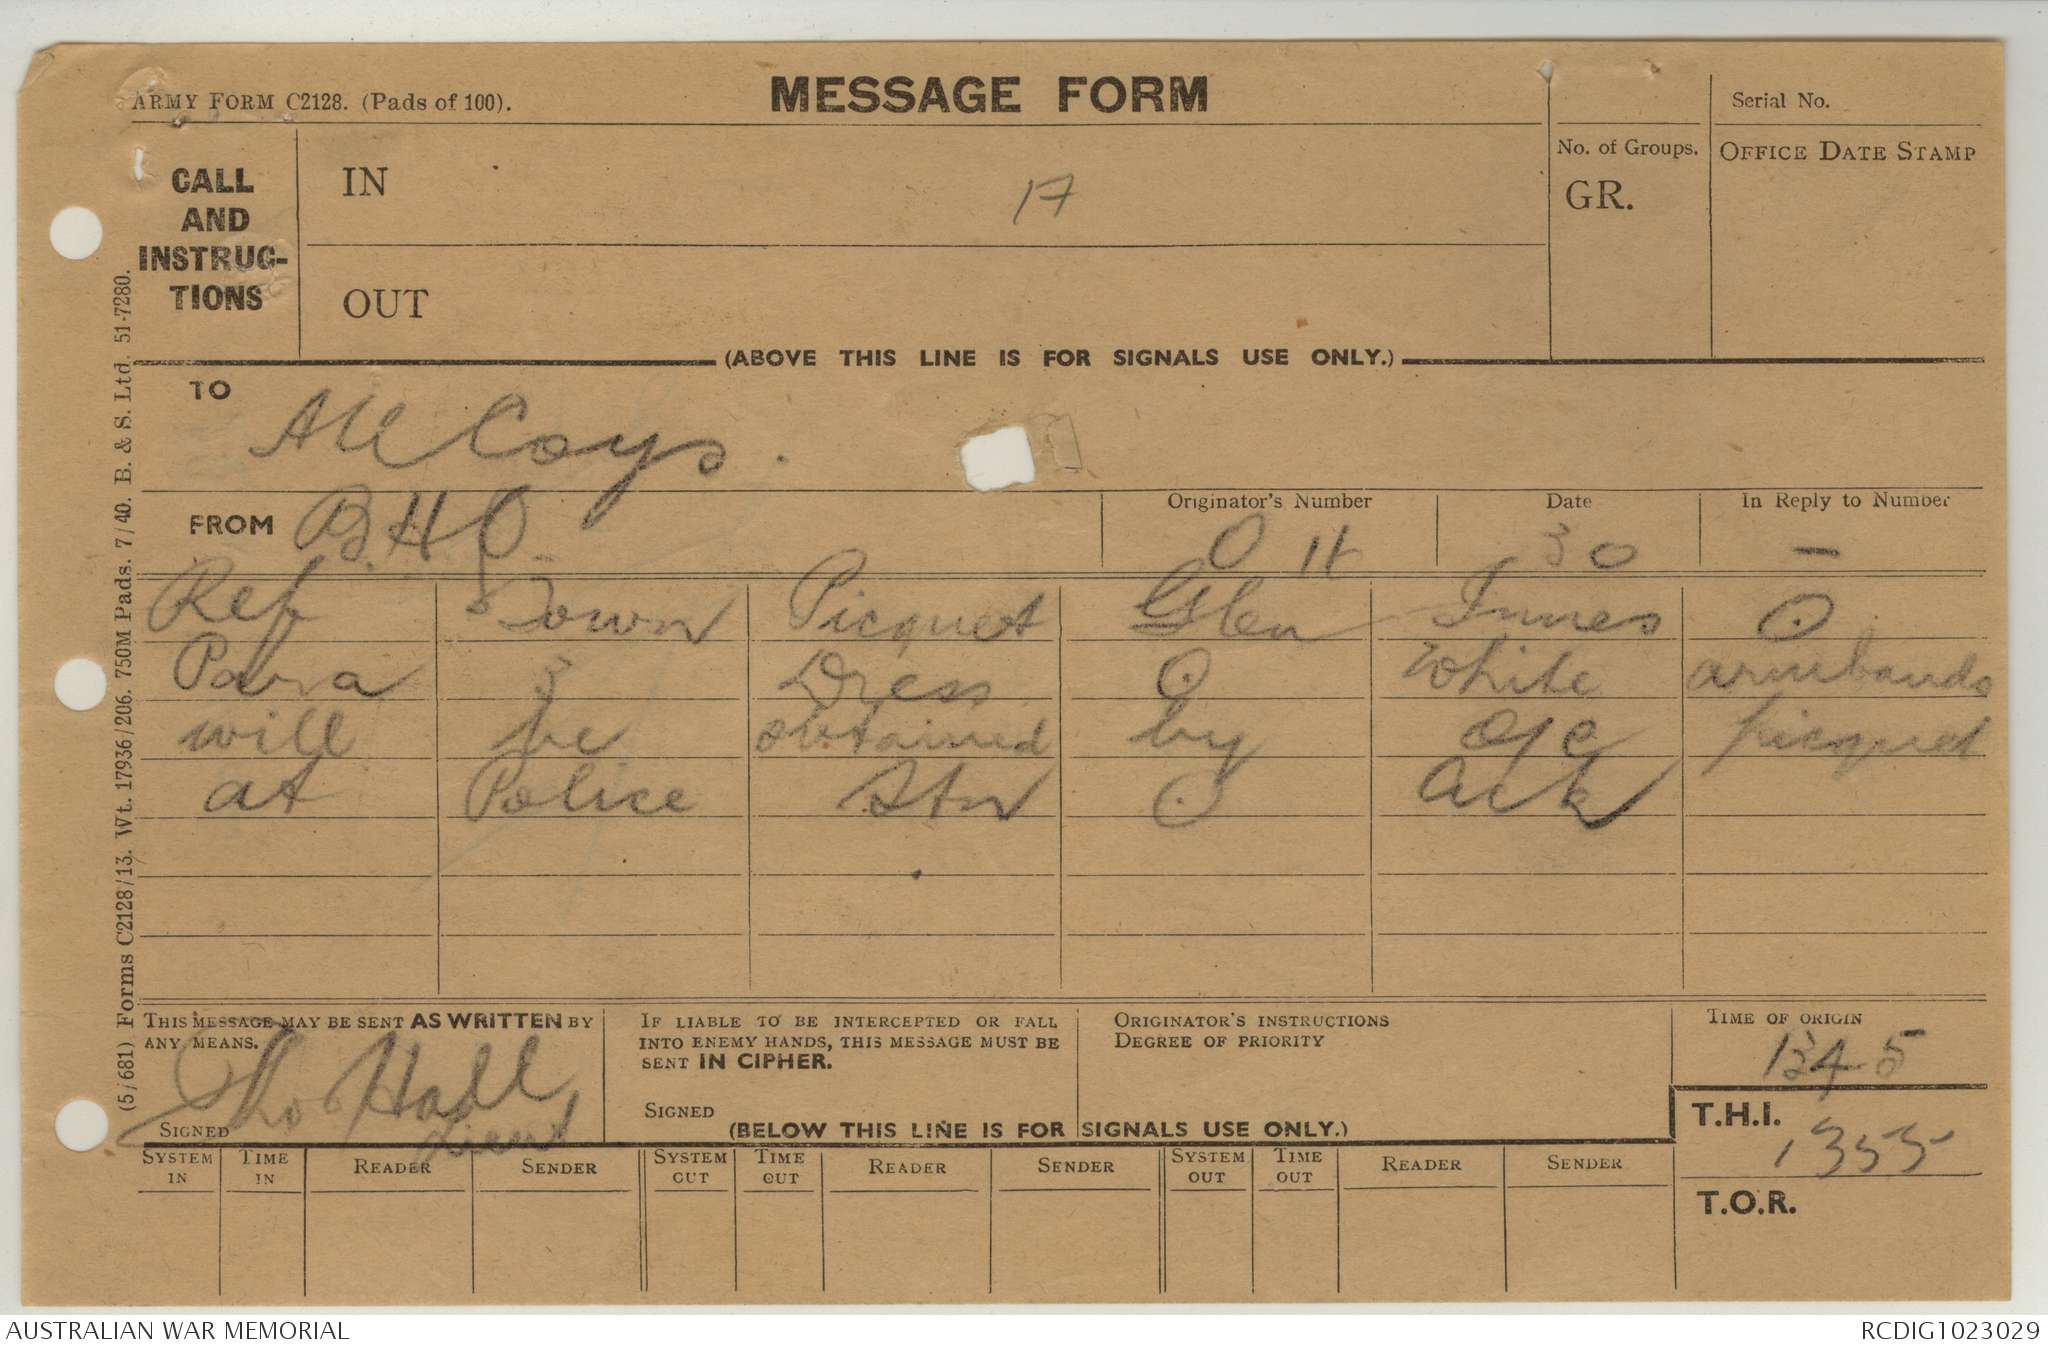 ARMY FORM C2128. (Pads of 100).
MESSAGE FORM
Serial No.
CALL AND INSTRUC-TIONS
IN
17
No. of Groups.
GR.
OFFICE DATE STAMP
OUT
(ABOVE THIS LINE IS FOR SIGNALS USE ONLY.)
TO
All Coys.
FROM B.H.Q.
Originator's Number
O 11
Date
30
In Reply to Number
-
Ref Town Picquet Glen Innes O
Para 3 Dress O White armbands
will be obtained by o/c picquet
at Police Stn O Ack
THIS MESSAGE MAY BE SENT AS WRITTEN BY
ANY MEANS.
Thos Hall
Lieut
SIGNED
IF LIABLE TO BE INTERCEPTED OR FALL
INTO ENEMY HANDS, THIS MESSAGE MUST BE
SENT IN CIPHER.
SIGNED
ORIGINATOR'S INSTRUCTIONS
DEGREE OF PRIORITY
TIME OF ORIGIN
1345
T.H.I.
1355
T.O.R.
(BELOW THIS LINE IS FOR SIGNALS USE ONLY.)
SYSTEM IN TIME IN READER SENDER SYSTEM OUT TIME OUT READER SENDER SYSTEM OUT TIME OUT READER SENDER
(5/681) Forms C2128/13. Wt. 17936/206. 750M Pads. 7/40. B. & S. Ltd. 51-7280.
AUSTRALIAN WAR MEMORIAL
RCDIG1023029